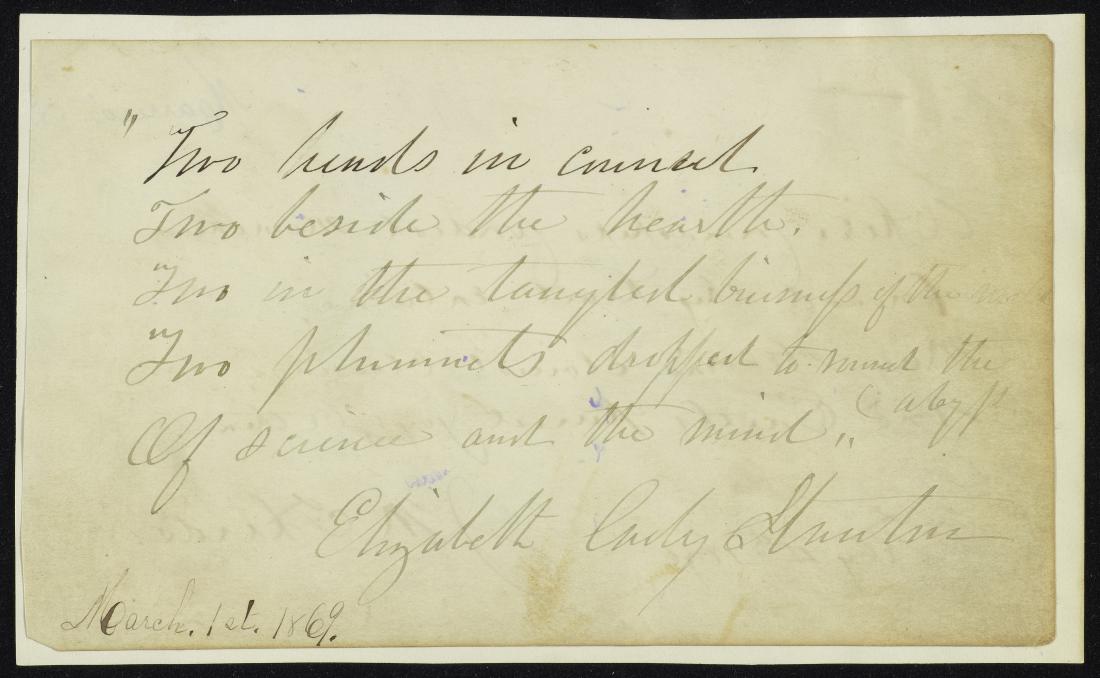 "Two heads in counsel
Two beside the hearth.
Two in the tangled business of the world
Two plummets dropped to sound the
(abyss
Of science and the mind."
Elizabeth Cady Stanton
March. 1st. 1869.